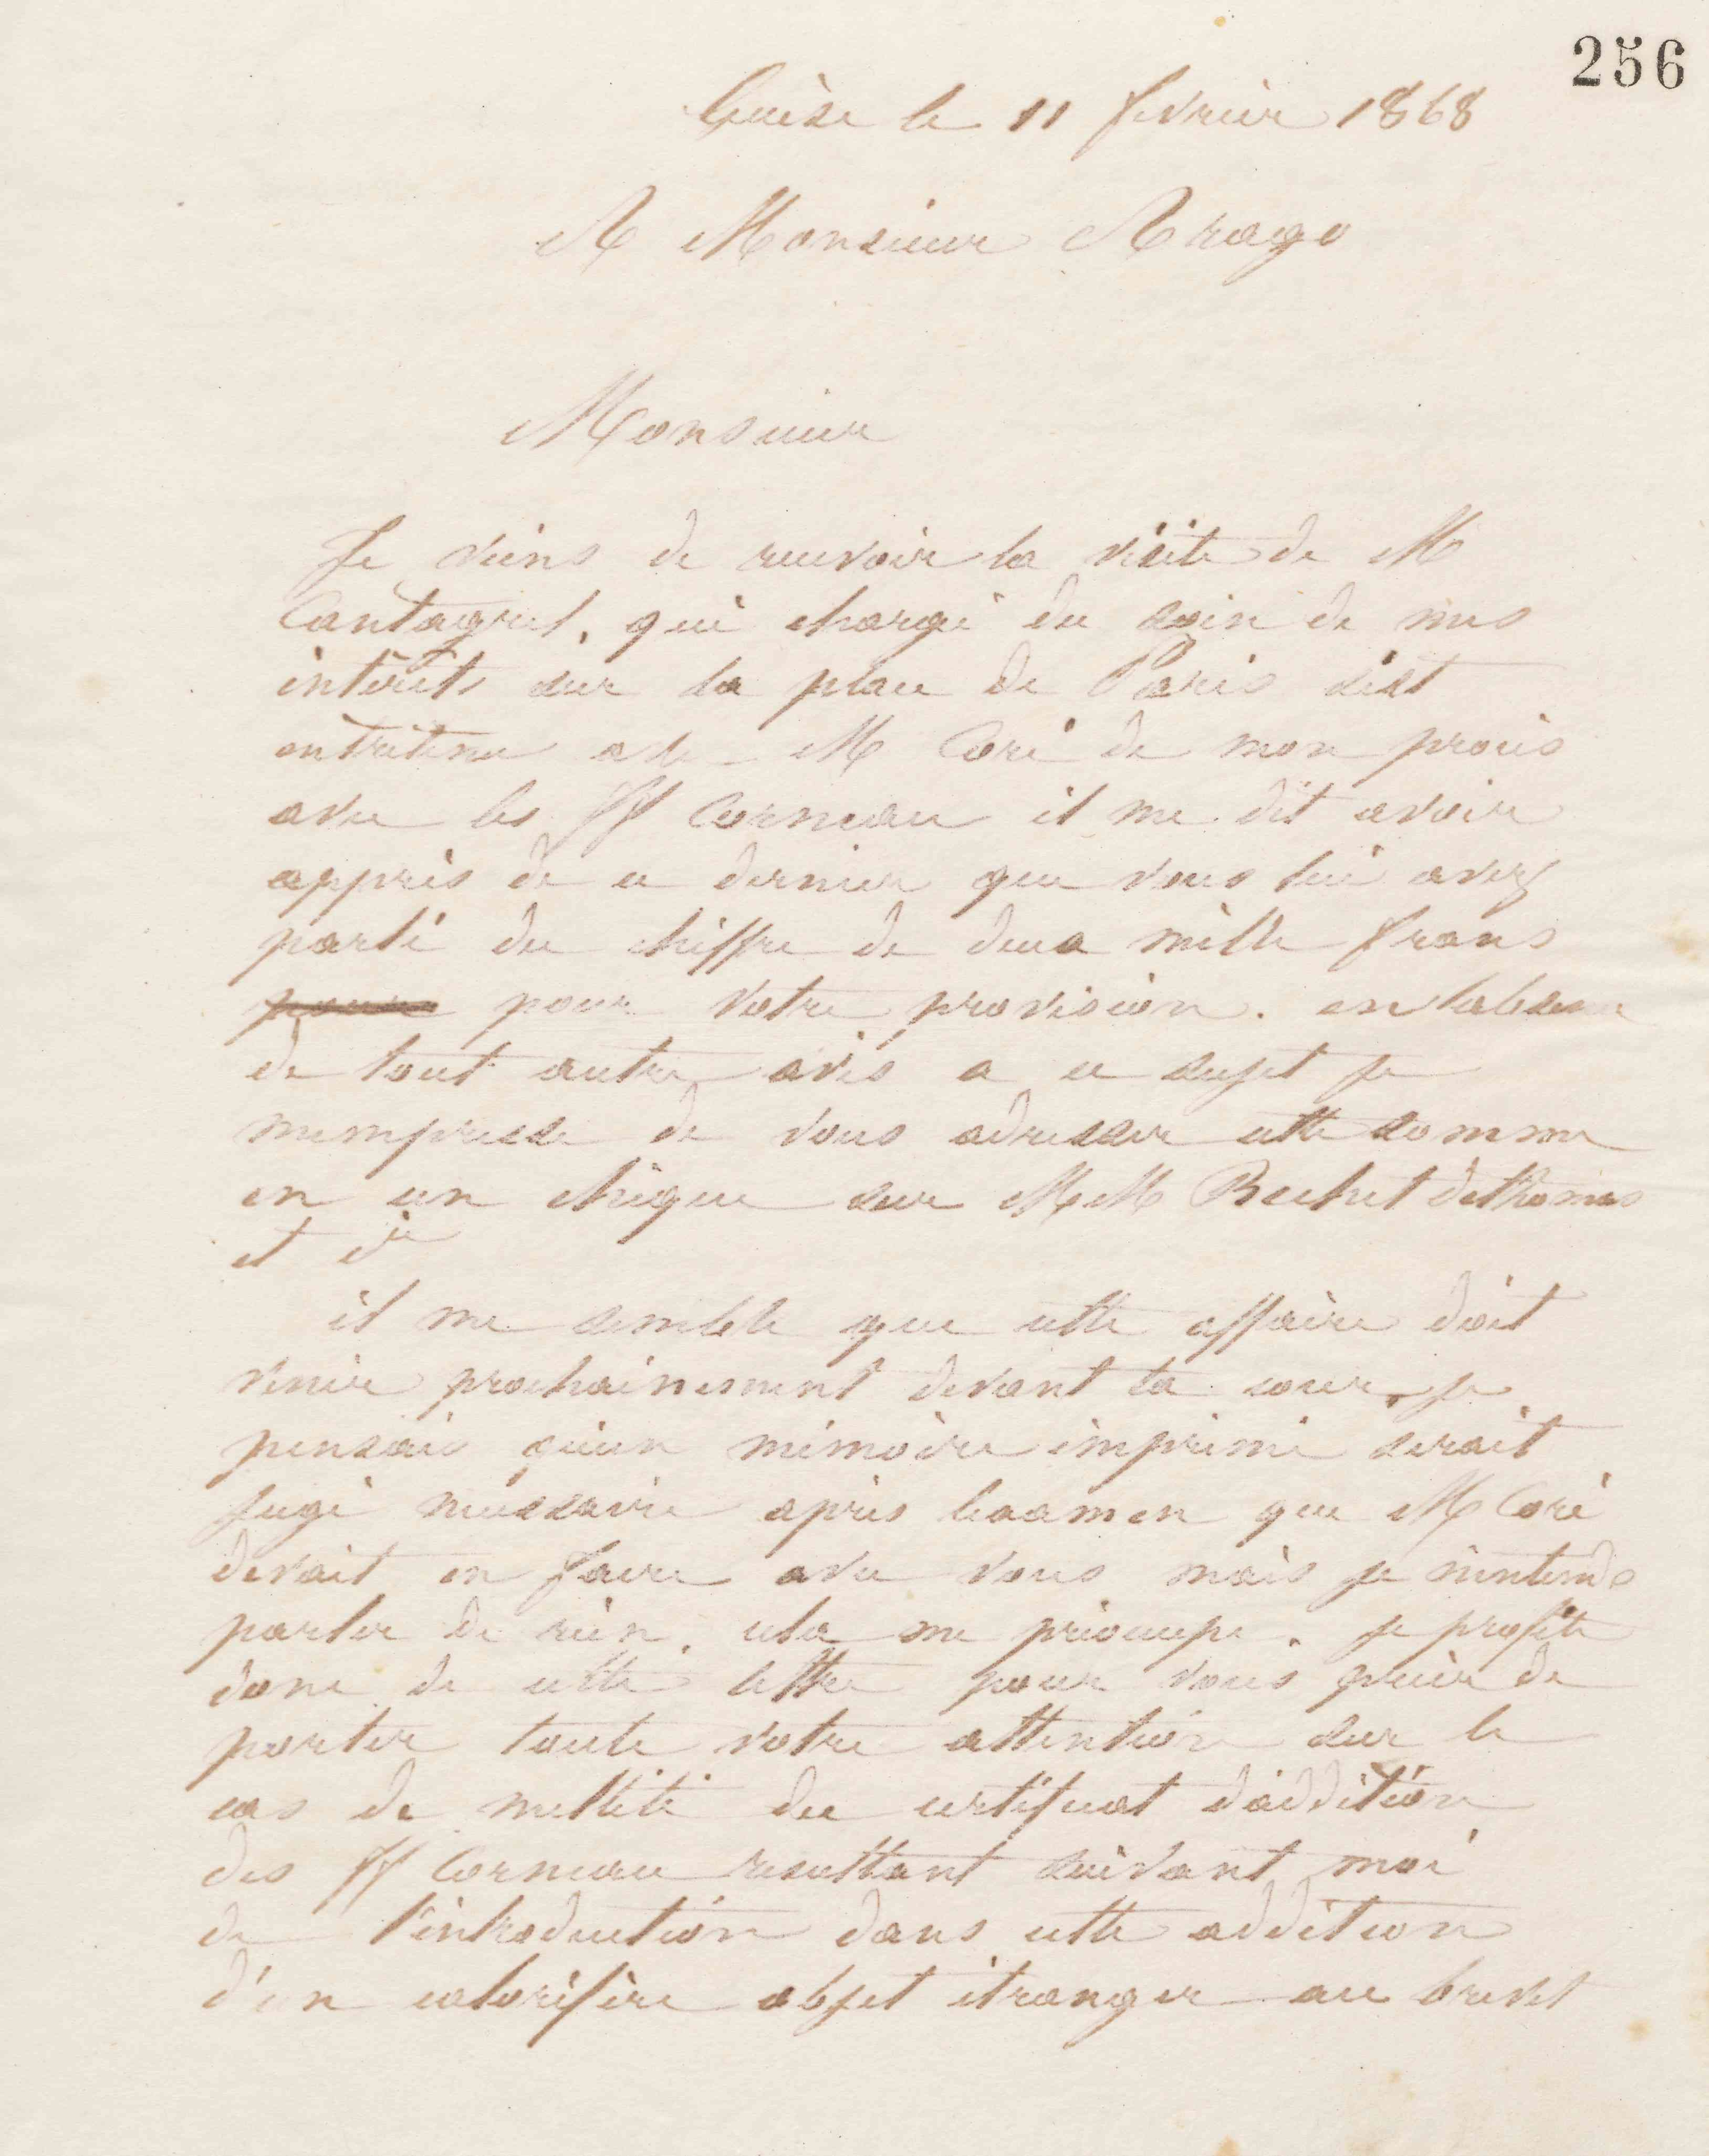 256
Guise le 11 fevrier 1868
A Monsieur Arago
Monsieur
Je viens de recevoir la visite de M
Cantagrel, qui chargé du soin de mes
intérêts sur la place de Paris s'est
entretenu avec M Coré de mon procès
avec les ff Corneau il me dit avoir
appris de ce dernier que vous lui avez
parlé du chiffre de deux mille francs
pour pour votre provision. en labsence
de tout autre avis a ce sujet je
mempresse de vous adresser cette somme
en un chèque sur MM Bechet Dethomas
et Cie
il me semble que cette affaire doit
venir prochainement devant la cour, je
pensais qu'un mémoire imprimé serait
jugé nécessaire après lexamen que M Coré
devait en faire avec vous mais je n'entends
parler de rien. cela me préoccupe. je profite
donc de cette lettre pour vous prier de
porter toute votre attention sur le
cas de nullité du certificat d'addition
des ff Corneau resultant suivant moi
de l'introduction dans cette addition
d'un calorifère objet étranger au brevet